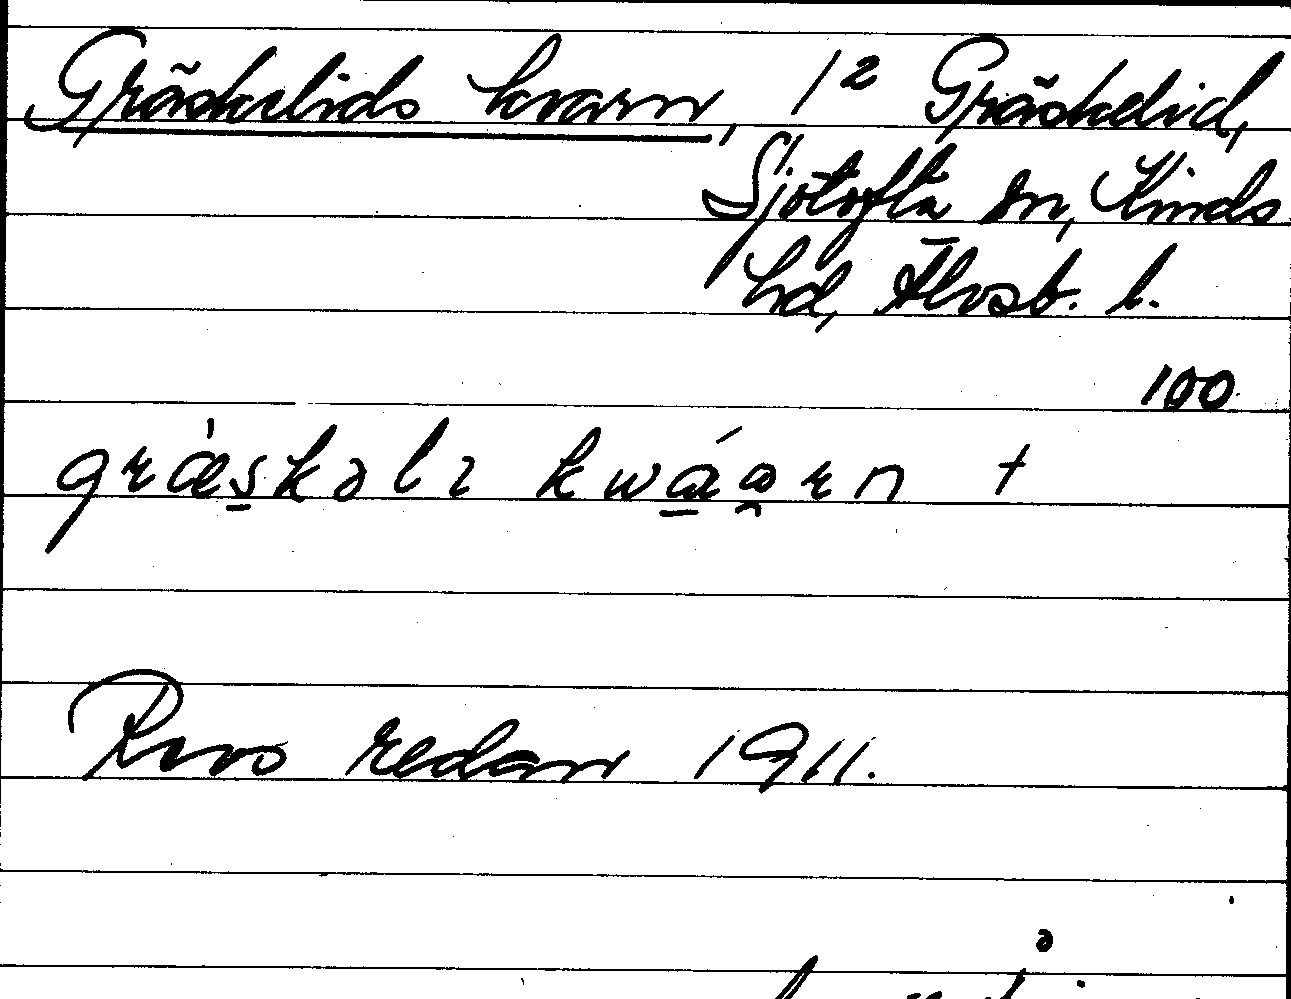 Gräskelids kvarn, 1² Gräskelid,
Sjötofta sn, Kinds
hd, Älvsb. l.
100
græ̀s̠kəlɪ kwǽərn +
Revs redan 1911.